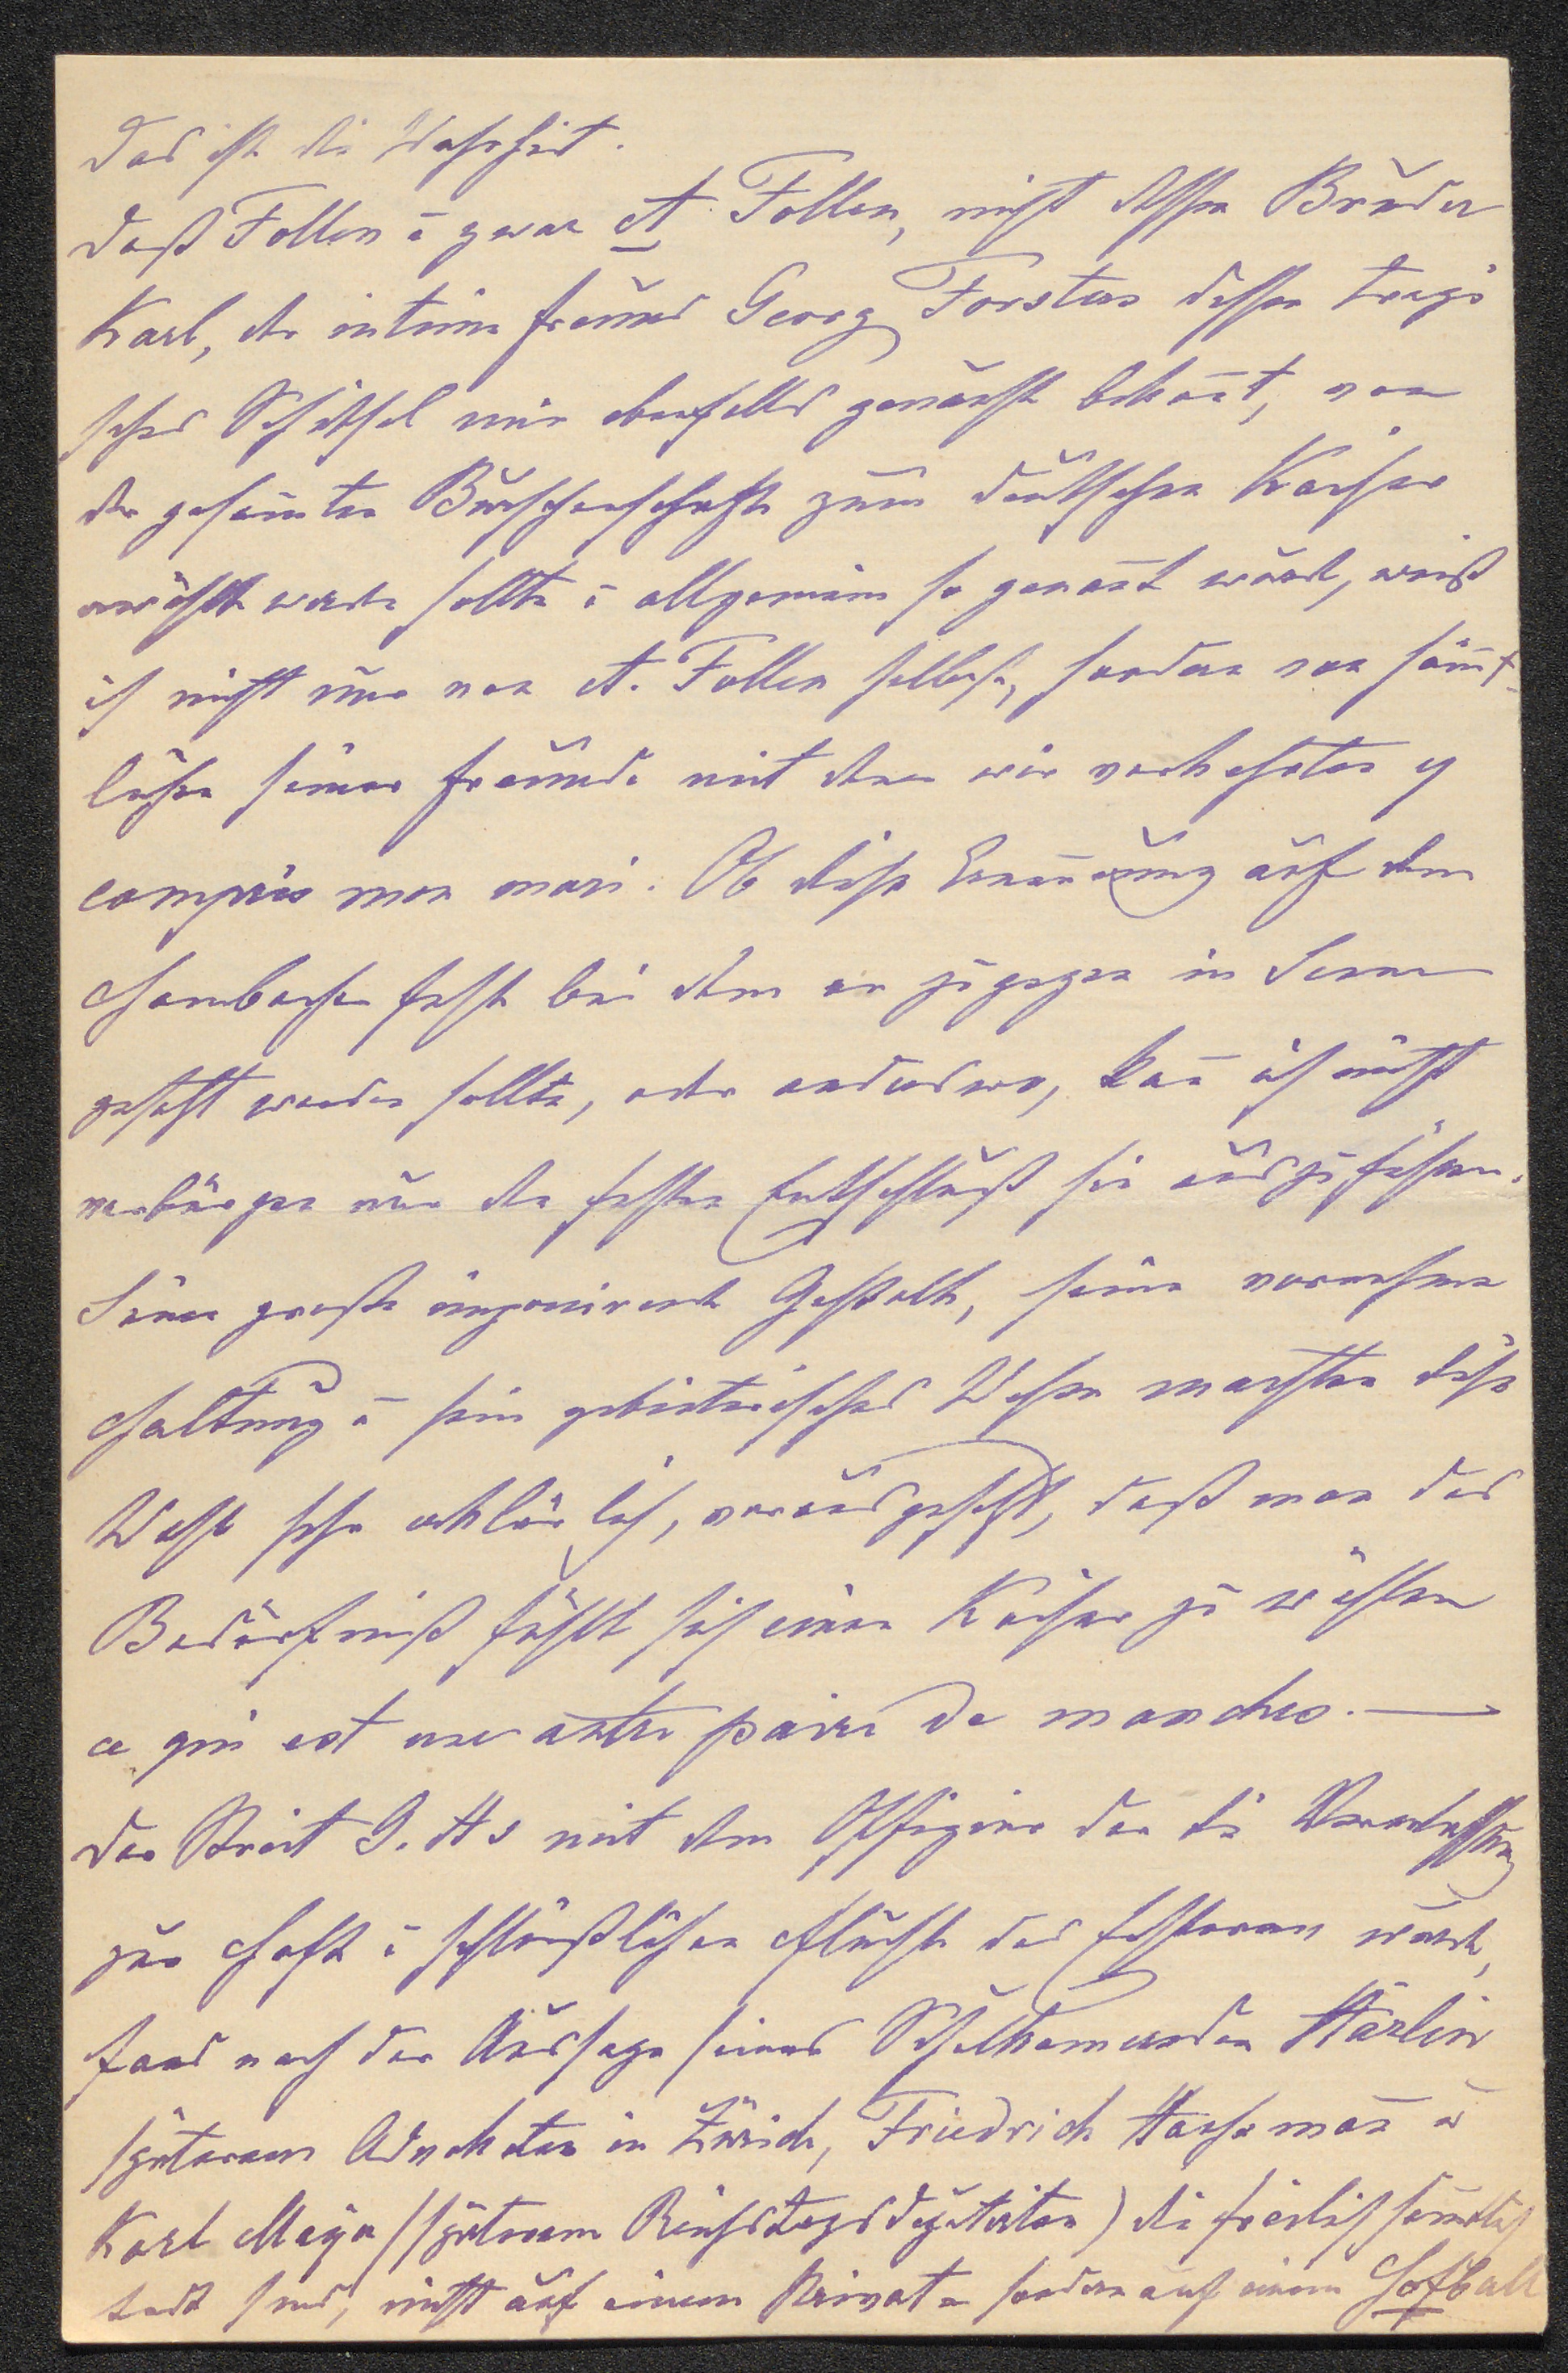 Das ist die Wahrheit.
Daß Follen ū zwar A. Follen, nicht dessen Bruder
Karl, der intime Freund Georg Forsters dessen tragi
sches Schicksal mir ebenfalls genau bekañt, von
der gesam̄ten Burschenschaft zum deutschen Kaiser
erwählt werden sollte ū allgemein so genañt wurde, weiß
ich nicht nur von A. Follen selbst, sondern von säm̄t-
lichen seiner Freunde mit denen wir verkehrten y
compris mon mari. Ob diese Ernen̄ung auf dem
Hambacher Fest bei dem er zugegen in Scene
gesetzt werden sollte, oder anderswo, kañ ich nicht
verbürgen nur den festen Entschluß sie auszuführen.
Seine große imponirende Gestalt, seine vornehme
Haltung ū sein gebieterisches Wesen machten diese
Wahl sehr erklärlich, vorausgesetzt, daß man das
Bedürfniß fühlt sich einen Kaiser zu wählen
ce qui est une autre paire de manches. —
Der Streit G. Hs mit dem Offizier der die Veranlassung
zur Haft ū schließlichen Flucht des Ersteren wurde,
fand nach der Aussage seines Schulkameraden Härlin
späterem Advokaten in Zürich, Friedrich Hausemañ ū
Karl Mayer (späterem Reichstagsdeputirten) die freilich säm̄tlich
todt sind, nicht auf einem Privat- sondern auf einem Hofball